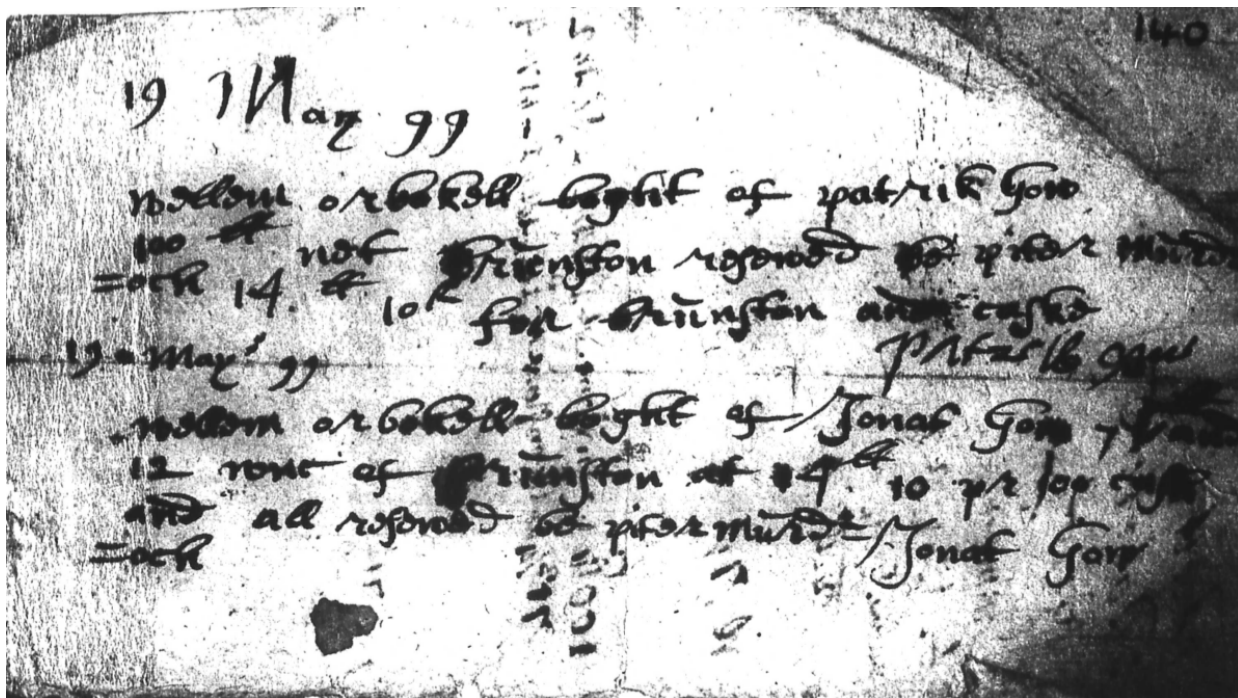 140
19 May 99
Wellem orbekell boght of patrik Gow
100 ℔ net brūnston resewed be piter Murd
=och 14 ℔ 10 for brūnston and caske
19 May 99
Wellem orbekell boght of Jonat Gow
12 wnc of brūnston at 14 ℔ 10 pr 100 cask
and all resewed be piter mūrd
=och Jonat Gow